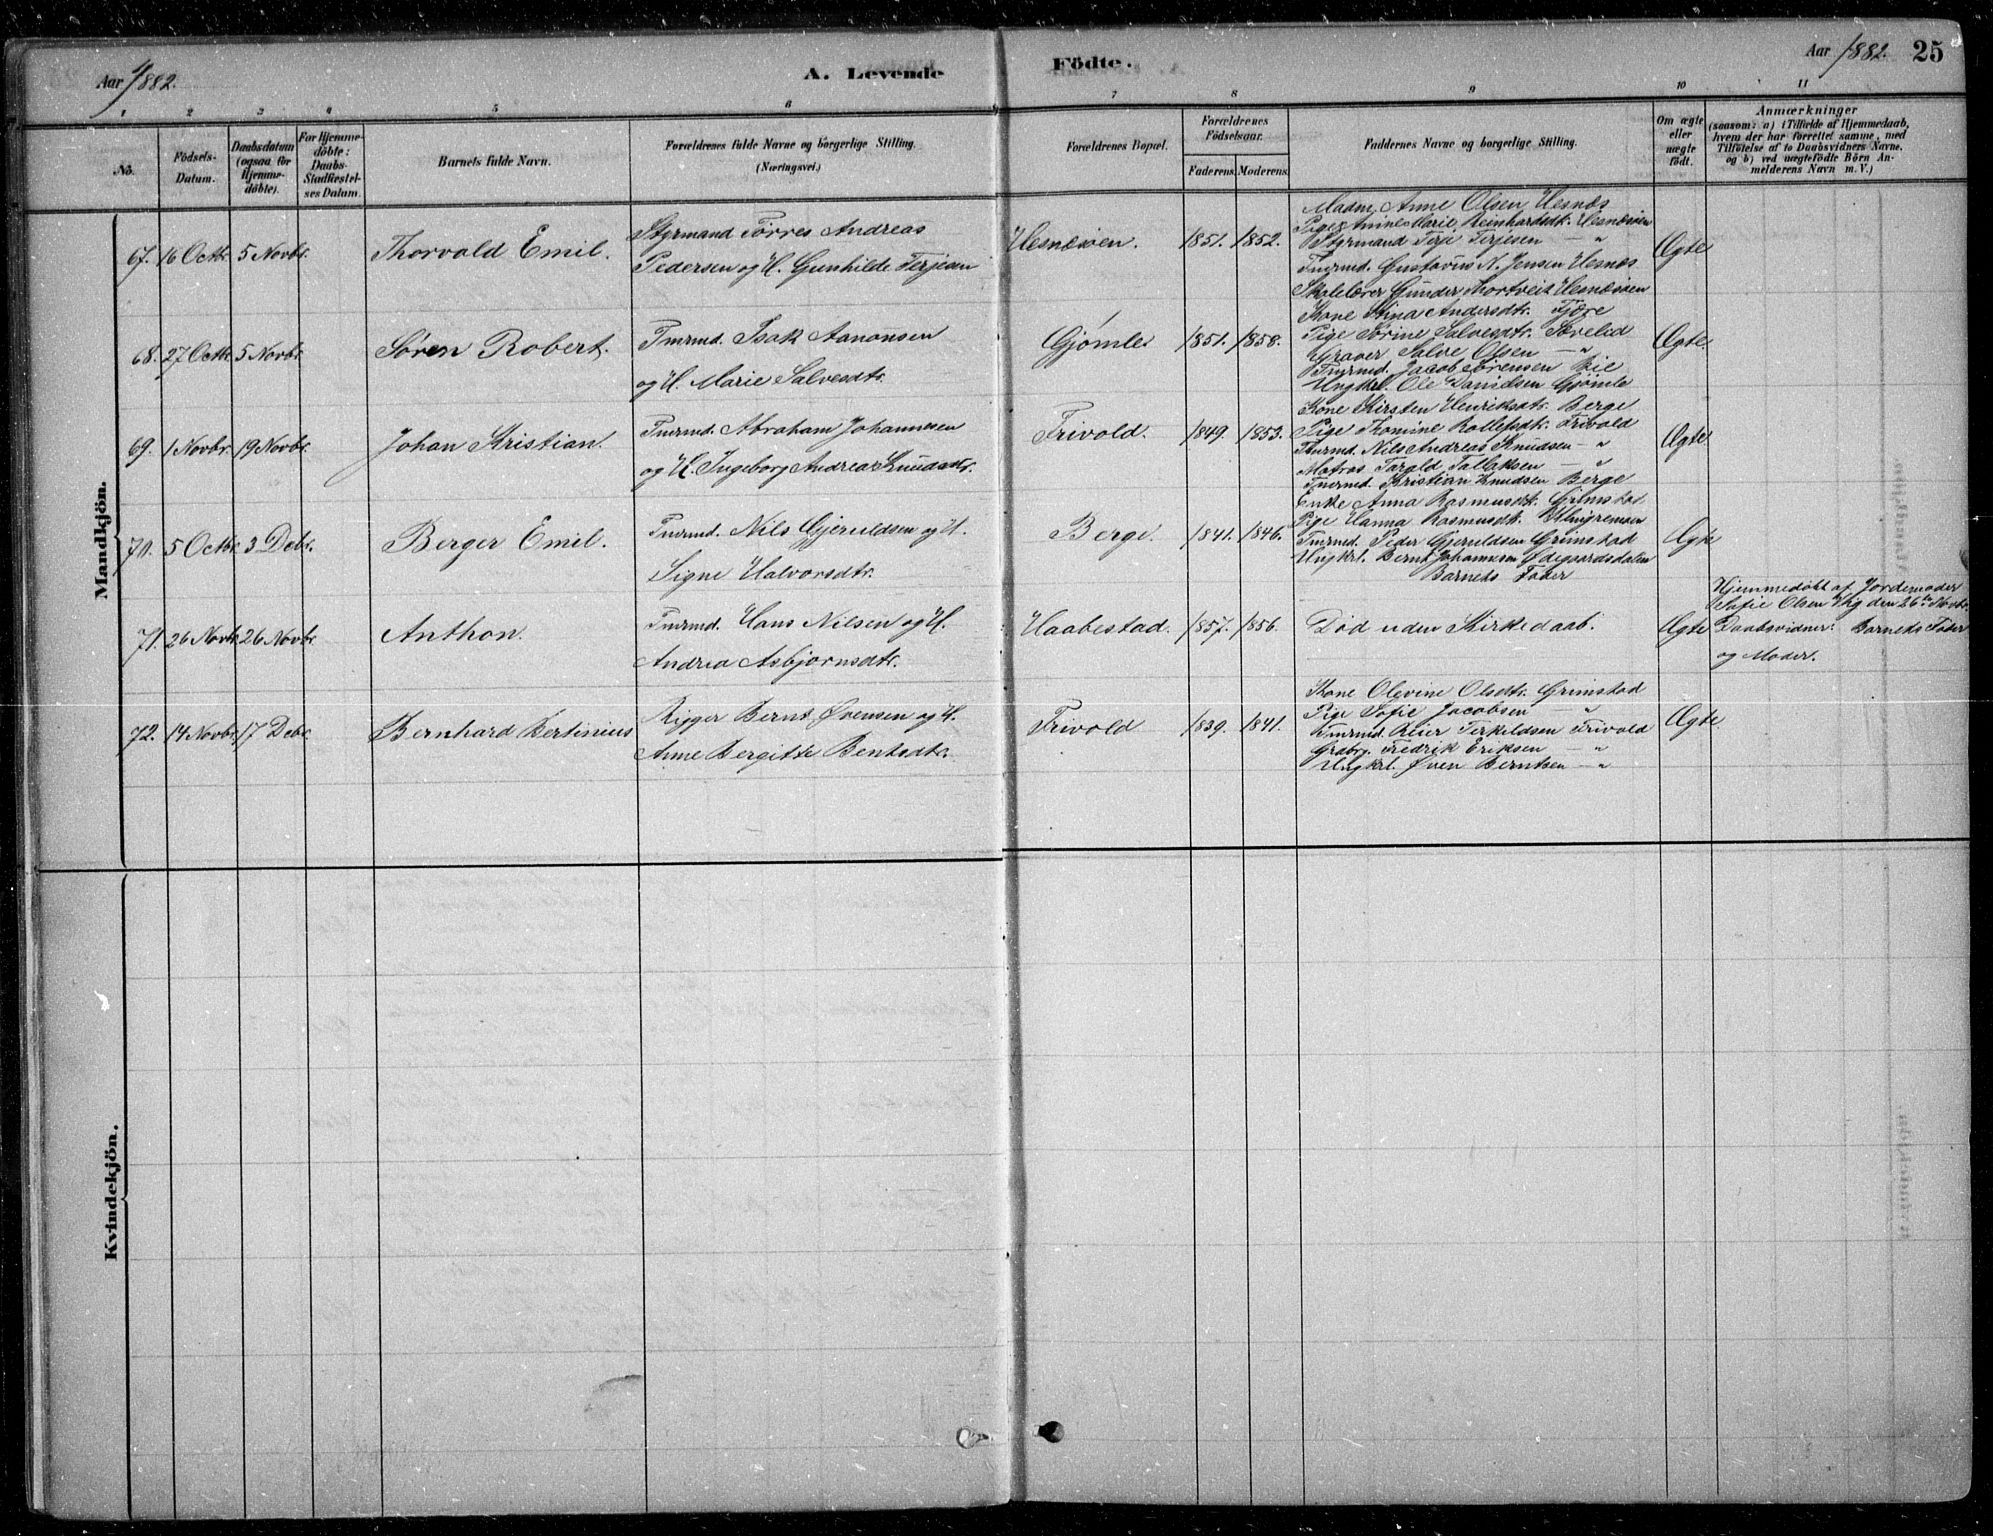 Aar 1882. A. Levende Födte. Aar 1882. 25
1 2 3 4 5 6 7 8 9 10 11
No.
Födsels-Datum.
Daabsdatum (ogsaa for Hjemmedöbte).
For Hjemmedöbte: Daabs-Stadfæstelses Datum.
Barnets fulde Navn.
Forældrenes fulde Navne og borgerlige Stilling.
(Næringsvei.)
Forældrenes Bopæl.
Forældrenes Födselsaar.
Faderens. Moderens.
Faddernes Navne og borgerlige Stilling.
Om ægte eller uægte födt.
Anmærkninger
(saasom: a) i Tilfælde af Hjemmedaab,
hvem der har forrettet samme, med
Tilföielse af to Daabsvidners Navne.
og b) ved uægtefödte Börn An-
melderens Navn m. V.)
Mandkjön.
67. 16 Octbr. 5 Novbr. Thorvald Emil. Styrmand Tørres Andreas
Pedersen og H. Gunhilde Terjesen
Hesnæsøen. 1851. 1852.
Madm. Anne Olsen Hesnæs
Pige Anine Marie Reinhardsdt. Hesnæsøen
Styrmand Terje Terjesen — "
Tmrmd. Gustavus N. Jensen Hesnæs
Skolelærer Gunder Thortveit Hesnæsøen
Ægte
68. 27 Octbr. 5 Novbr. Søren Robert. Tmrmd. Isak Aanonsen
og H. Marie Salvesdtr.
Gjømle. 1851. 1858.
Kone Stina Andersdtr. Fjære
Pige Sørine Salvesdtr.
Graver Salve Olsen — "
Tmrmd. Jacob Sørensen Bie
Ungkrl. Ole Danielsen Gjømle
Ægte.
69. 1 Novbr. 19 Novbr. Johan Kristian. Tmrmd. Abraham Johannesen
og H. Ingeborg Andrea Knudsdtr.
Frivold. 1849. 1853.
Kone Kirsten Henriksdtr. Berge
Pige Thomine Rollefsdtr. Frivold
Tmrmd. Nils Andreas Knudsen — "
Matros Tarald Tallaksen — "
Tmrmd. Kristian Knudsen Berge
Ægte
70. 5 Octbr. 3 Debr. Berger Emil. Tmrmd. Nils Gjeruldsen og H.
Signe Halvorsdtr.
Berge. 1841. 1846.
Enke Anna Rasmusdtr. Grimstad
Pige Hanna Rasmusdt.
Tmrmd. Peder Gjeruldsen Grimstad
Ungkrl. Bernt Johannesen Ødegaardsdalen
Barnets Fader
Ægte
71. 26 Novbr. 26 Novbr. Anthon. Tmrmd. Hans Nilsen og H.
Andrea Asbjørnsdtr.
Haabestad. 1857. 1856. Død uden Kirkedaab. Ægte
Hjemmedøbt af Jordemoder
Sofie Olsen Vig den 26de Novbr.
Daabsvidner: Barnets Fader
og Moder.
72. 14 Novbr. 17 Debr. Bernhard Bertinius Rigger Bernt Øvensen og H.
Anne Bergitte Bentsdtr.
Frivold 1839. 1841.
Kone Olevine Olsdtr. Grimstad
Pige Sofie Jacobsen — "
Tmrmd. Reier Terkildsen Frivold
Fredrik Eriksen "
Ungkrl. Øven Berntsen — "
Ægte
Kvindekjön.